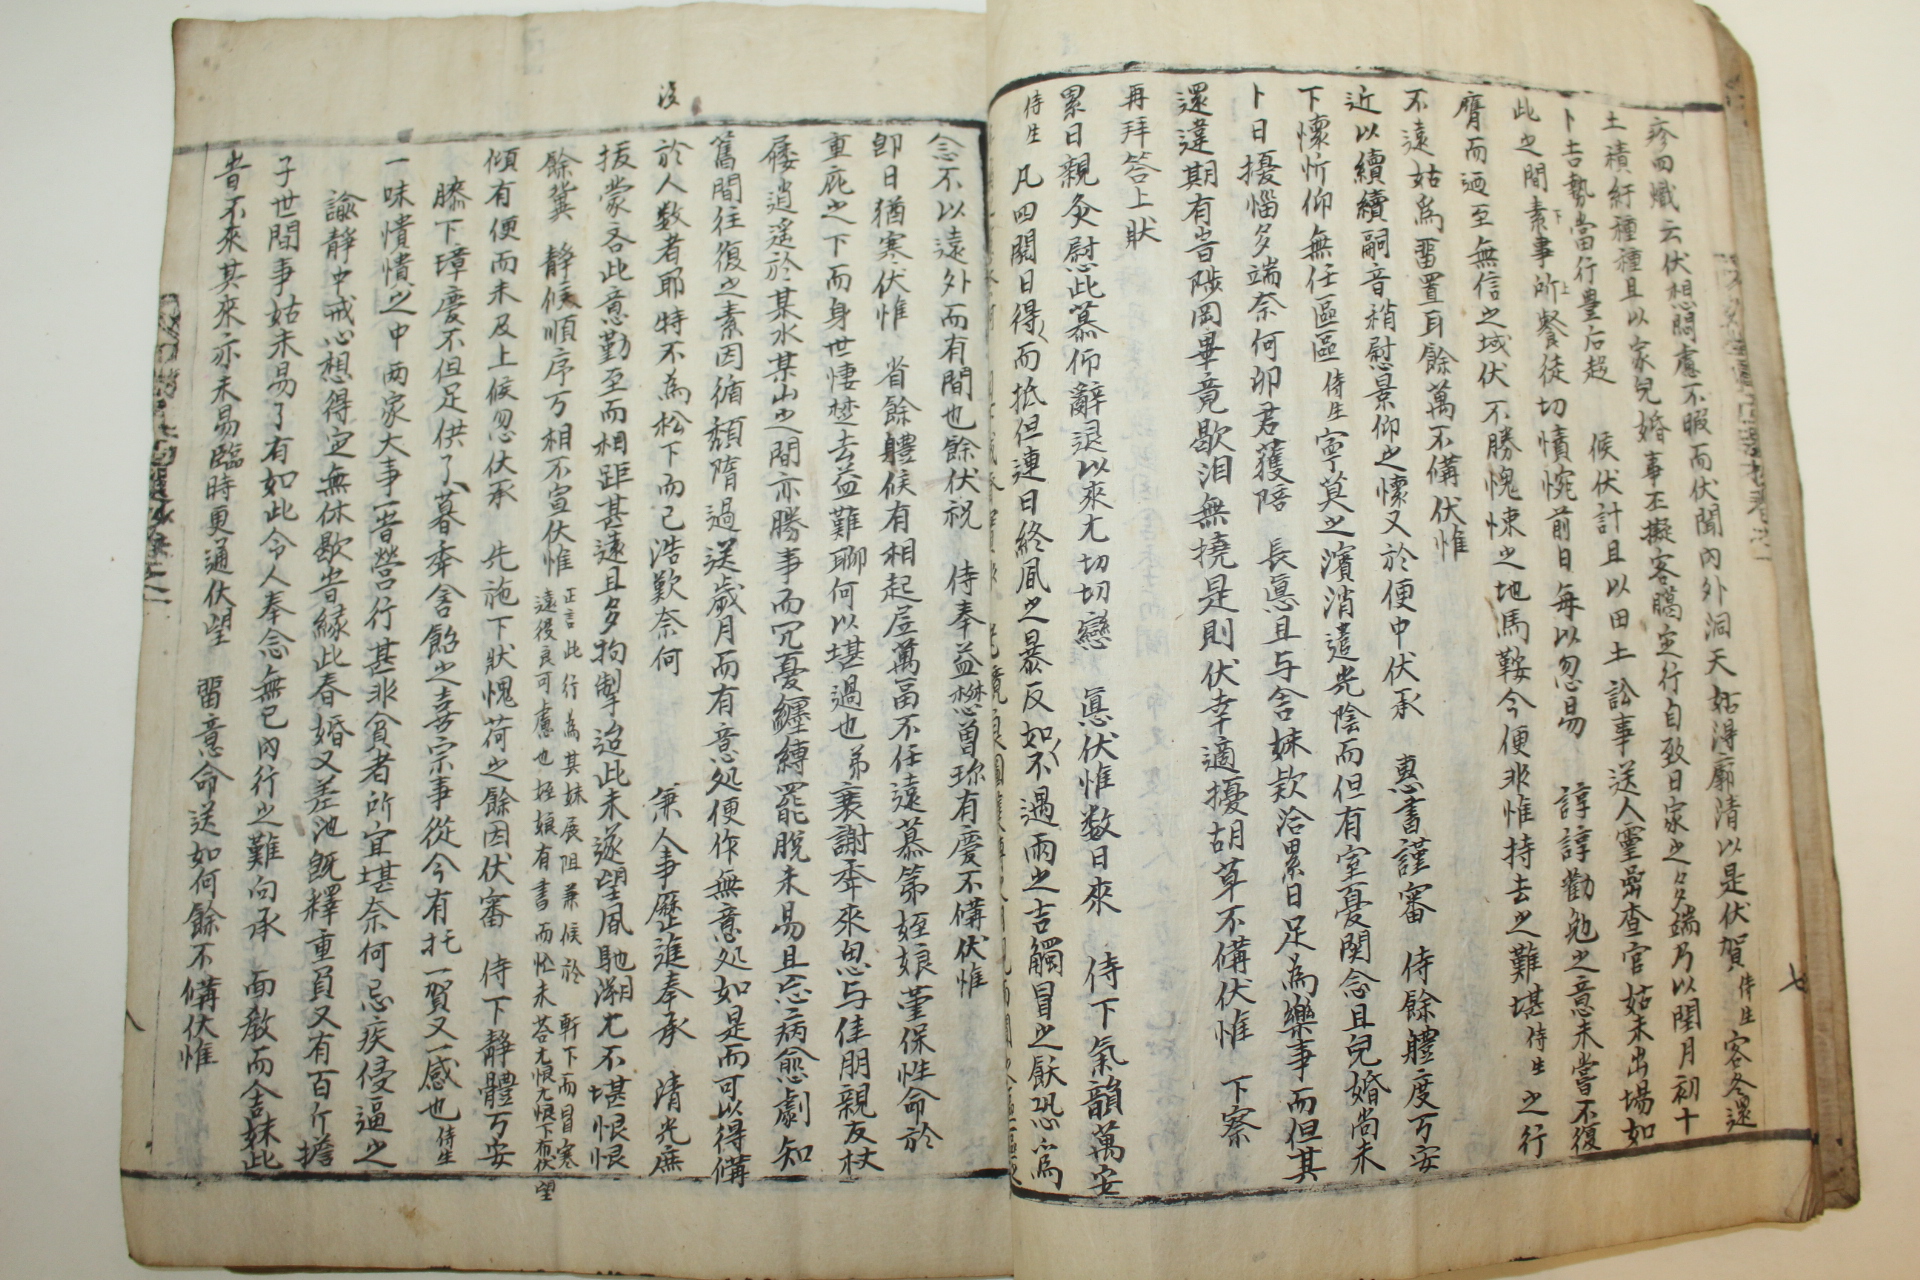 疹四熾云伏想悶慮不暇而伏聞內外洞天姑得廓清以是伏賀侍生客冬還
土積紆種種且以家兒婚事丕擬客臈定行自致日家之多端乃以閏月初十
卜吉勢當行豊后超 候伏計且以田土訟事送人靈嵒查官姑未出場如
此之間素事所餐徒切憒惋前日每以忽易 諄諄勸勉之意未嘗不復
膺而迺至無信之域伏不勝愧悚之地馬鞍今便非惟持去之難堪侍生之行
不遠姑爲畱置耳餘萬不備伏惟
近以續續嗣音稍慰景仰之懷又於便中伏承 惠書謹審 侍餘軆度万安
下懷忻仰無任區區侍生寧莫之濱消遣光陰而但有室憂関念且兒婚尚未
卜日擾惱多端奈何卯君獲陪 長悳且与舍妹欵洽累日足為樂事而但其
還違期有岧陟岡畢竟歇泪無撓是則伏幸適擾胡草不備伏惟 下察
再拜答上狀
累日親灸慰此慕仰辭退以來尤切切戀 悳伏惟数日來 侍下氣韻萬安
侍生凡四閱日得而抵但連日終風之暴反如不遇雨之吉觸冒之厭恐爲
念不以遠外而有間也餘伏祝 侍奉益懋曽珎有慶不備伏惟
卽日猶寒伏惟 省餘軆候有相起居萬畐不任遠慕第姪娘菫保性命於
重庇之下而身世悽楚去益難聊何以堪過也弟衰謝奔來思与佳朋親友杖
屨逍遥於某水某山之間亦勝事而冗憂纒縛罷脫未易且忘病愈劇知
舊間往復之素因循頹隋過送歲月而有意処便作無意処如是而可以得備
於人数者耶特不為松下而已浩歎奈何 兼人事歴進奉承 清光庶
拔蒙吝此意勤至而相距甚遠且多拘掣迨此未遂望風馳溯尤不堪恨恨
餘冀 靜候順序万相不宣伏惟 正言此行為其妹展阻兼候於 軒下而冒寒
遠後良可慮也姪娘有書而忙未荅尤恨尤恨下布伏望
傾有便而未及上候忽伏承 先施下狀愧荷之餘因伏審 侍下靜軆万安
膝下璋慶不但足供了暮奔舍飴之喜宗事從今有托一賀又一感也侍生
一味憒憒之中両家大事一岧營行甚非貧者所宜堪奈何忌疾侵逼之
諭靜中戒心想得定無休歇岧緣此春婚又差池旣釋重負又有百斤擔
子世間事姑未易了有如此令人奉念無已內行之難向承 面敎而舍妹此
岧不來其來亦未易臨時更通伏望 畱意命送如何餘不備伏惟
没
七
八